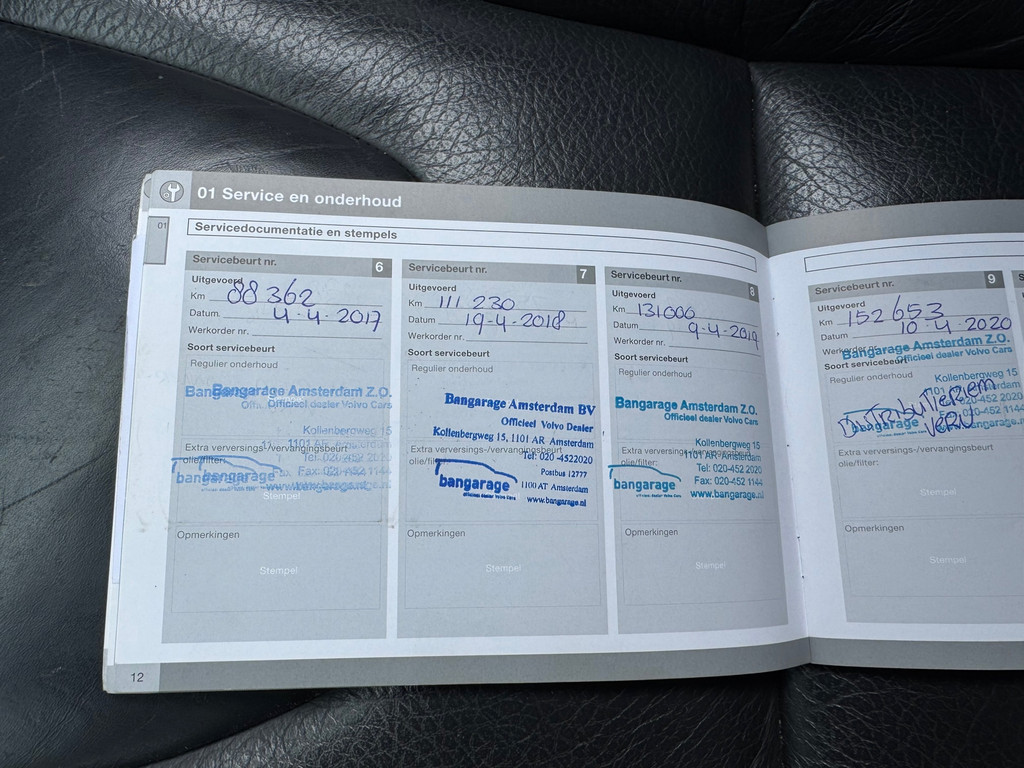 01 Service en onderhoud
01
Servicedocumentatie en stempels
Servicebeurt nr. 6
Uitgevoerd
Km 88 362
Datum 4-4-2017
Werkorder nr.
Soort servicebeurt
Regulier onderhoud
Bangarage Amsterdam Z.O.
Officieel dealer Volvo Cars
Kollenbergweg 15
1101 AR Amsterdam
Extra verversings-/vervangingsbeurt
olie/filter:
Tel: 020-452 2020
Fax: 020-452 1144
bangarage
www.bangarage.nl
Stempel
Opmerkingen
Stempel
Servicebeurt nr. 7
Uitgevoerd
Km 111 230
Datum 19-4-2018
Werkorder nr.
Soort servicebeurt
Regulier onderhoud
Bangarage Amsterdam BV
Officieel Volvo Dealer
Kollenbergweg 15, 1101 AR Amsterdam
Extra verversings-/vervangingsbeurt
olie/filter:
Tel: 020-4522020
Postbus 12777
1100 AT Amsterdam
www.bangarage.nl
bangarage
officieel dealer Volvo Cars
Opmerkingen
Stempel
Servicebeurt nr. 8
Uitgevoerd
Km 131000
Datum 9-4-2019
Werkorder nr.
Soort servicebeurt
Regulier onderhoud
Bangarage Amsterdam Z.O.
Officieel dealer Volvo Cars
Kollenbergweg 15
1101 AR Amsterdam
Extra verversings-/vervangingsbeurt
olie/filter:
Tel: 020-452 2020
Fax: 020-452 1144
www.bangarage.nl
bangarage
officieel dealer Volvo Cars
Opmerkingen
Stempel
Servicebeurt nr. 9
Uitgevoerd
Km 152 653
Datum 10-4-2020
Werkorder nr.
Bangarage Amsterdam Z.O.
Officieel dealer Volvo Cars
Soort servicebeurt
Regulier onderhoud
Kollenbergweg 15
1101 AR Amsterdam
020-452 2020
020-452 1144
bangarage
www.bangarage.nl
Extra verversings-/vervangingsbeurt
olie/filter:
Stempel
Opmerkingen
Stempel
12